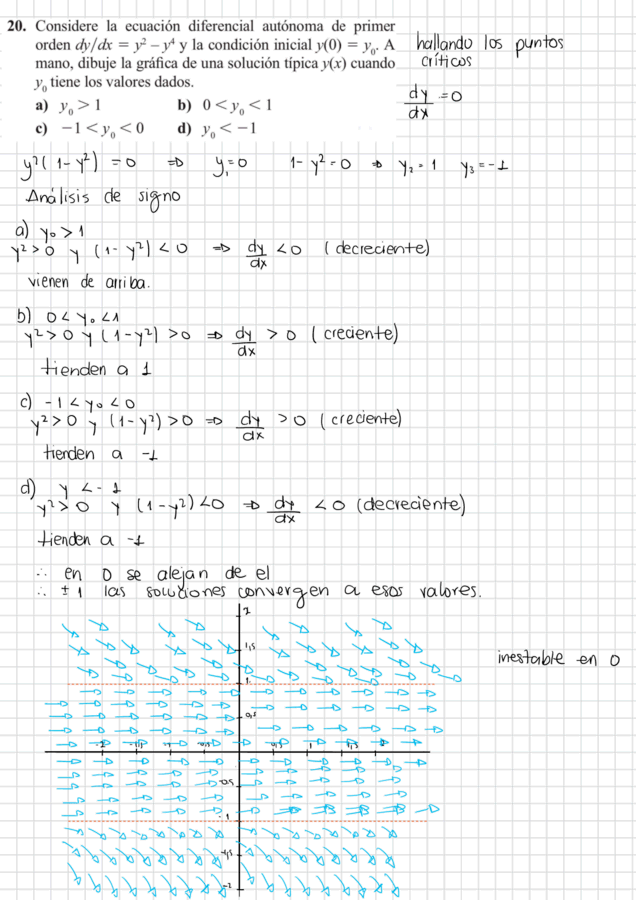 20. Considere la ecuación diferencial autónoma de primer
orden dy/dx = y² – y⁴ y la condición inicial y(0) = y₀. A
mano, dibuje la gráfica de una solución típica y(x) cuando
y₀ tiene los valores dados.
a) y₀ > 1 b) 0 < y₀ < 1
c) −1 < y₀ < 0 d) y₀ < −1
hallando los puntos
críticos
dy/dx = 0
y²(1-y²) = 0 ⇒ y₁=0 1-y²=0 ⇒ y₂=1 y₃=-1
Análisis de signo
a) y₀ > 1
y²>0 y (1-y²) < 0 ⇒ dy/dx < 0 (decreciente)
vienen de arriba.
b) 0 < y₀ < 1
y²>0 y (1-y²) > 0 ⇒ dy/dx > 0 (creciente)
tienden a 1
c) -1 < y₀ < 0
y²>0 y (1-y²) > 0 ⇒ dy/dx > 0 (creciente)
tienden a -1
d) y < -1
y²>0 y (1-y²) < 0 ⇒ dy/dx < 0 (decreciente)
tienden a -1
∴ en 0 se alejan de el
∴ ±1 las soluciones convergen a esos valores.
inestable en 0
2
1,5
1
0,5
-2 -1,5 -1 -0,5 0,5 1 1,5 2
-0,5
-1
-1,5
-2